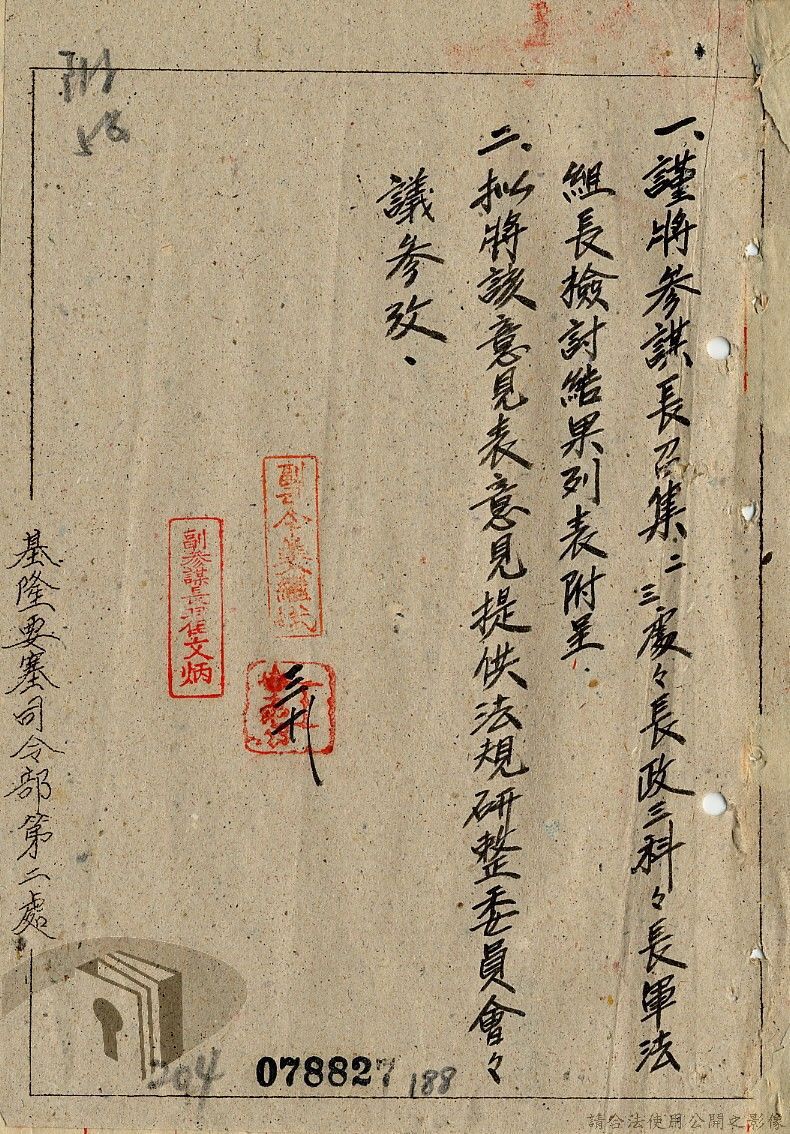 一、謹將參謀長召集、二三處々長政三科々長軍法
組長檢討結果列表附呈.
二、拟將該意見表意見提供法規研整委員會々
議參攷、
副參謀長任文炳
三十
基隆要塞司令部第二處
附
58
204
078827
188
請合法使用公開之影像